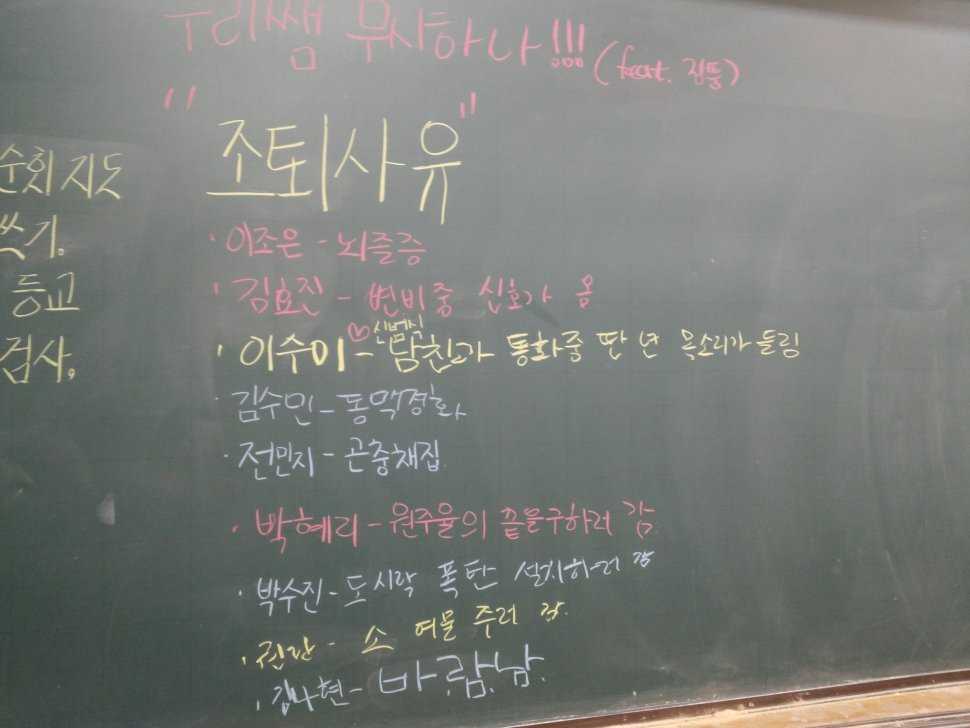 우리쌤 무사하나!!! (feat. 짐뚱)
"조퇴사유"
순회지도
쓰기.
등교
검사.
· 이조은 - 뇌졸증
· 김효진 - 변비중 신호가 옴
· 이수미 - ♡신범식 남친과 통화중 딴 년 목소리가 들림
· 김수민 - 동맥경화
· 전민지 - 곤충채집
· 박혜리 - 원주율의 끝을구하러 감
· 박수진 - 도시락 폭탄 설치하러 감
· 권란 - 소 여물 주러 감.
· 김나현 - 바.람.남.